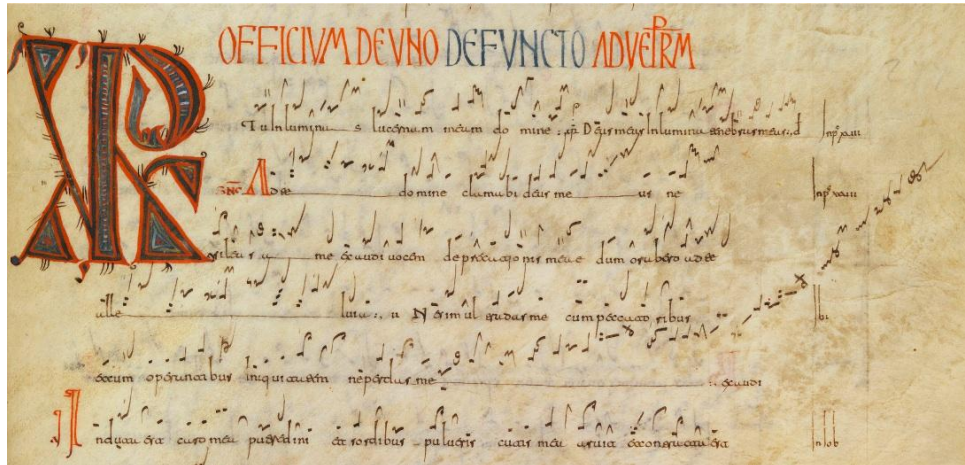 OFFICIVM DE VNO DEFVNCTO AD
Tu inluminas lucernam meam domine Deus meus inlumina tenebras meas
Ad te domine clamabi deus meus ne
sileas a me exaudi vocem deprecationis mee dum orabero ad te
alleluia Ne simul tradas me cum peccatoribus Ibi
et cum operantibus iniquitatem ne perdas me exaudi
Induta est caro mea putredini et sordibus pulveris cutis mea arida et contracta est In iob